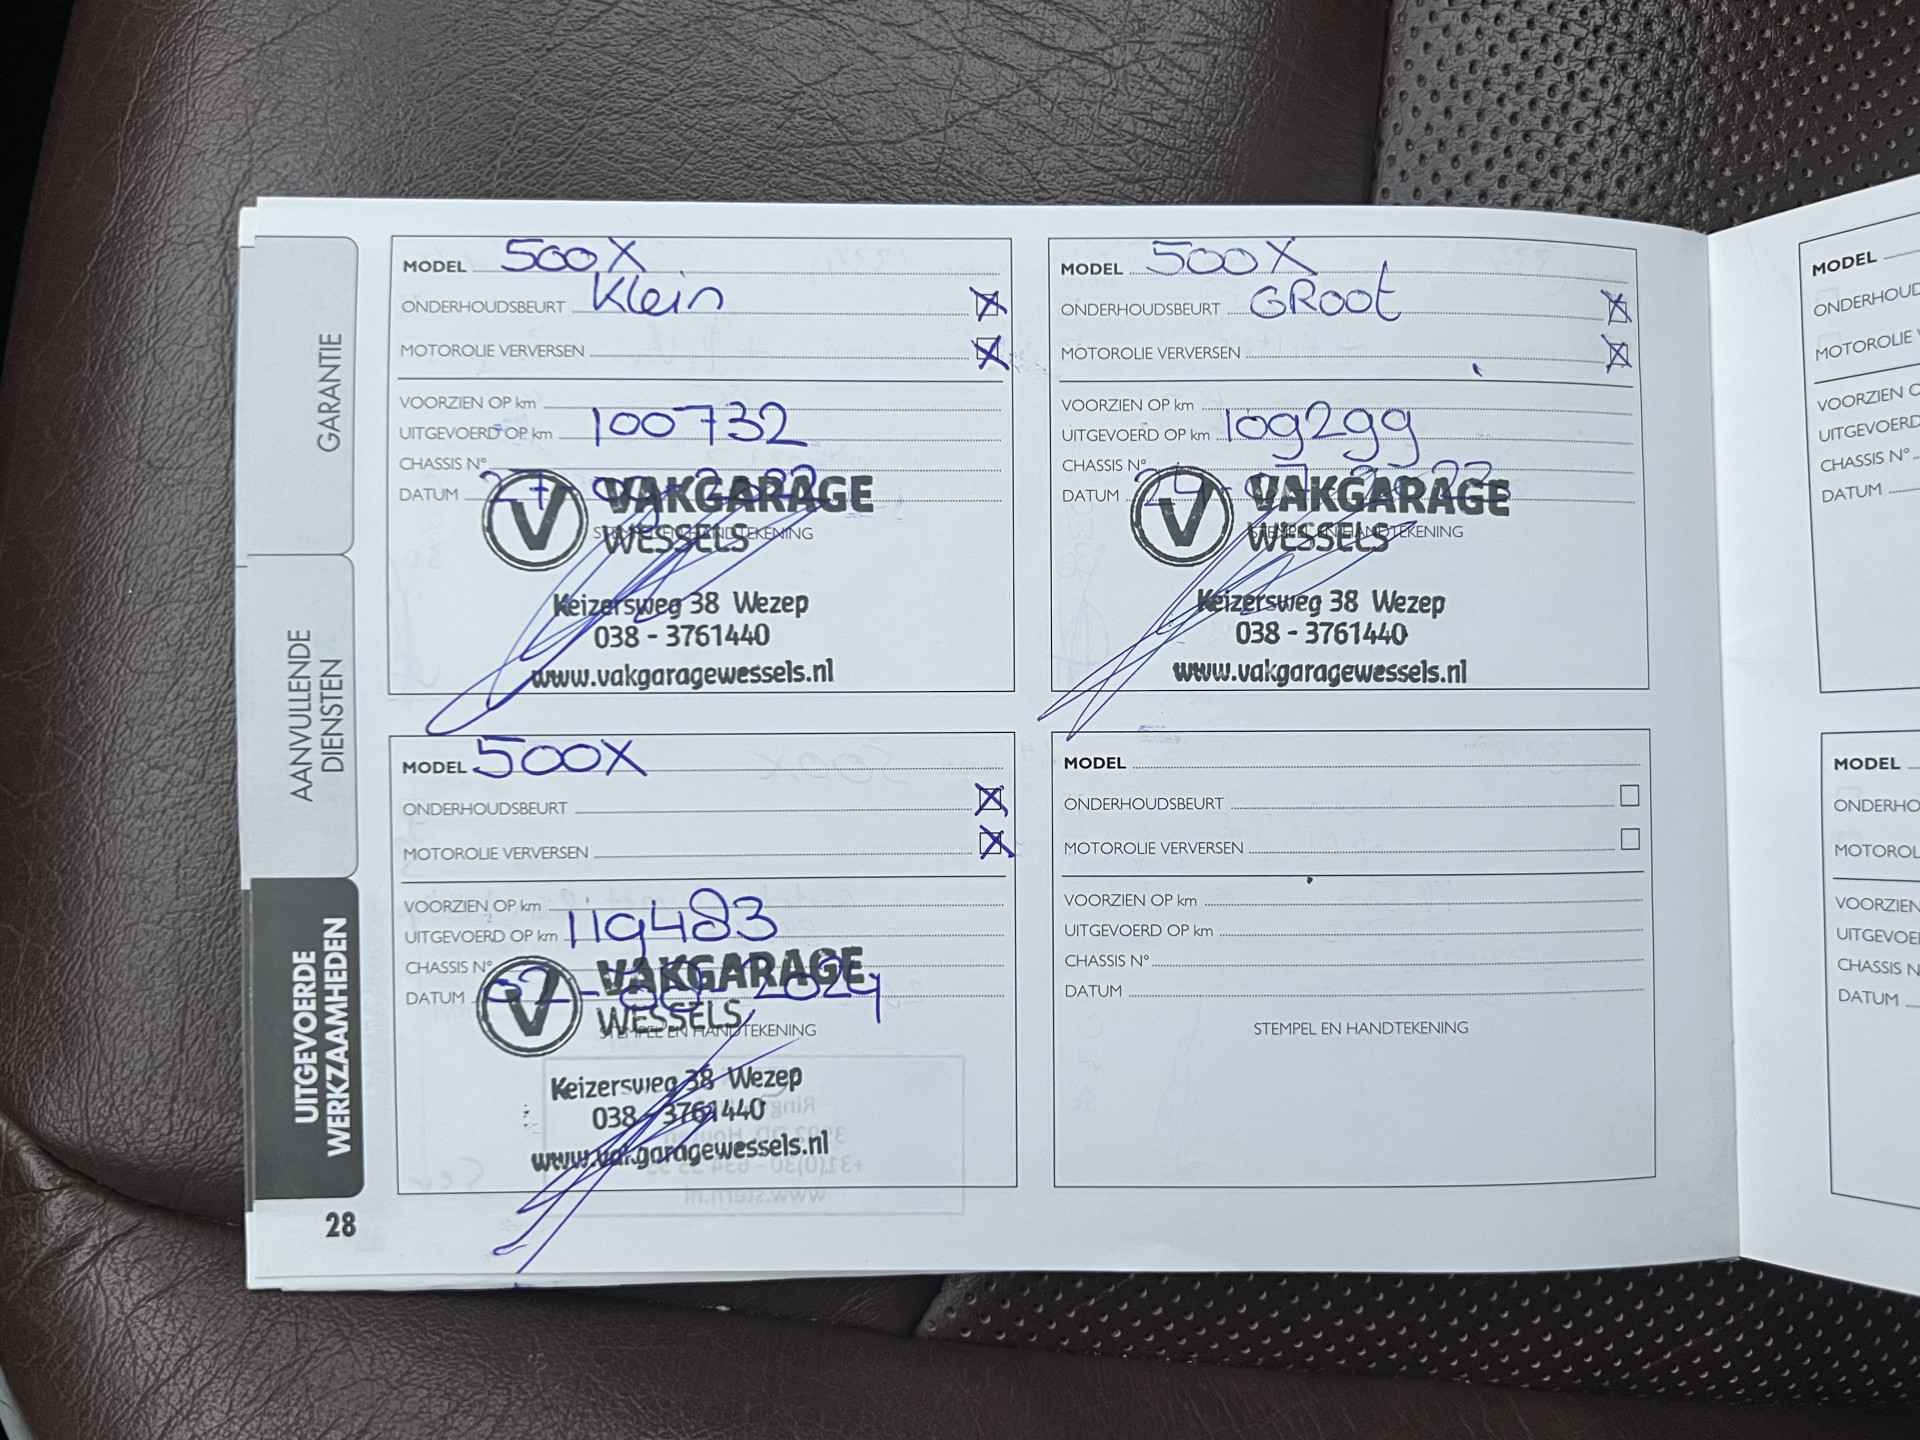 GARANTIE
AANVULLENDE
DIENSTEN
UITGEVOERDE
WERKZAAMHEDEN
28
MODEL 500X
ONDERHOUDSBEURT Klein
MOTOROLIE VERVERSEN
VOORZIEN OP km
UITGEVOERD OP km 100732
CHASSIS N°
DATUM 27-09-2022
VAKGARAGE
WESSELS
STEMPEL EN HANDTEKENING
Keizersweg 38 Wezep
038 - 3761440
www.vakgaragewessels.nl
MODEL 500X
ONDERHOUDSBEURT GROOT
MOTOROLIE VERVERSEN
VOORZIEN OP km
UITGEVOERD OP km 109299
CHASSIS N°
DATUM 24-07-2023
VAKGARAGE
WESSELS
STEMPEL EN HANDTEKENING
Keizersweg 38 Wezep
038 - 3761440
www.vakgaragewessels.nl
MODEL 500X
ONDERHOUDSBEURT
MOTOROLIE VERVERSEN
VOORZIEN OP km
UITGEVOERD OP km 119483
CHASSIS N°
DATUM 2024
VAKGARAGE
WESSELS
STEMPEL EN HANDTEKENING
Keizersweg 38 Wezep
038 - 3761440
www.vakgaragewessels.nl
MODEL
ONDERHOUDSBEURT
MOTOROLIE VERVERSEN
VOORZIEN OP km
UITGEVOERD OP km
CHASSIS N°
DATUM
STEMPEL EN HANDTEKENING
MODEL
ONDERHOUD
MOTOROLIE V
VOORZIEN O
UITGEVOERD
CHASSIS N°
DATUM
MODEL
ONDERHO
MOTOROL
VOORZIEN
UITGEVOE
CHASSIS N
DATUM